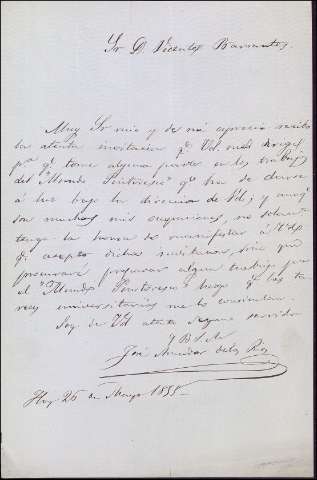 Sr. D. Vicente Barrantes.
Muy Sr. mio y de mi aprecio: recibo
la atenta invitacion qe. Vd. me dirige
pa. qe. tome alguna parte en los trabajos
del "Mundo Pintoresco" qe. ha de darse
á luz bajo la direccion de Vd; y aunqe.
son muchas mis ocupaciones, no solamte.
tengo la honra de manifestar á Vd.
qe. acepto dicha invitacion, sino que
procuraré preparar algun trabajo para
el "Mundo Pintoresco" luego qe. las ta-
reas universitarias me lo consientan.
Soy de Vd. atento seguro servidor
Q B S M
José Amador de los Rios
Hoy 26 de Mayo 1858